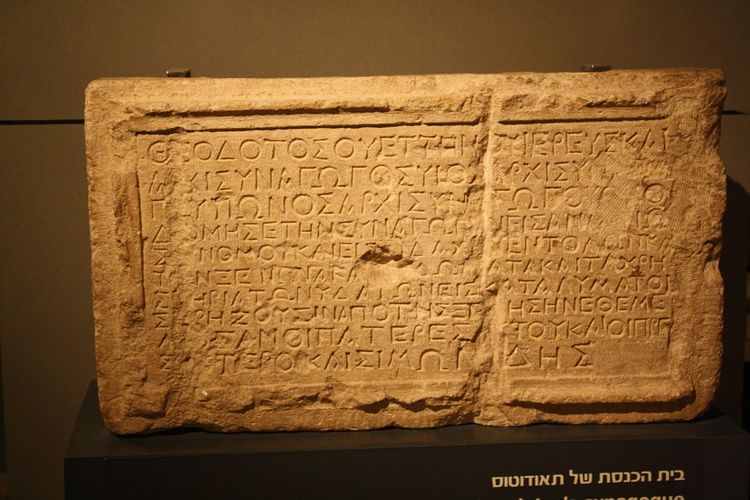 ΘΕΟΔΟΤΟΣ ΟΥΕΤΤΗΝΟΥ ΙΕΡΕΥΣ ΚΑΙ
ΑΡΧΙΣΥΝΑΓΩΓΟΣ ΥΙΟΣ ΑΡΧΙΣΥΝ
ΓΟΥ ΥΙΩΝΟΣ ΑΡΧΙΣΥΝΑΓΩΓΟΥ ΩΚΟ
ΔΟΜΗΣΕ ΤΗΝ ΣΥΝΑΓΩΓΗΝ ΕΙΣ ΑΝ
ΣΙΝ ΝΟΜΟΥ ΚΑΙ ΕΙΣ ΔΙΔΑΧΗΝ ΕΝΤΟΛΩΝ ΚΑΙ
ΤΟΝ ΞΕΝΩΝΑ ΚΑΙ ΤΑ ΔΩΜΑΤΑ ΚΑΙ ΤΑ ΧΡΗ
ΣΤΗΡΙΑ ΤΩΝ ΥΔΑΤΩΝ ΕΙΣ ΚΑΤΑΛΥΜΑ ΤΟΙ
Σ ΧΡΗΖΟΥΣΙΝ ΑΠΟ ΤΗΣ ΞΕΝΗΣ ΗΝ ΕΘΕΜΕ
ΛΙΩΣΑΝ ΟΙ ΠΑΤΕΡΕΣ ΑΥΤΟΥ ΚΑΙ ΟΙ ΠΡΕ
ΣΒΥΤΕΡΟΙ ΚΑΙ ΣΙΜΩΝΙΔΗΣ
בית הכנסת של תאודוטוס